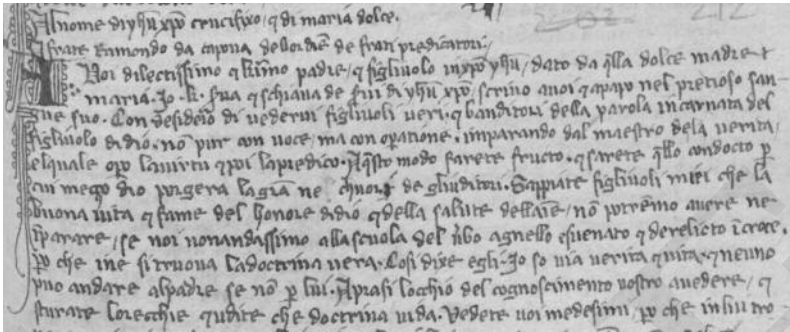 Al nome di yhu xpo crucifixo, et di maria dolce.
A frate Ramondo da Capova dellordine de frati predicatori.
A Voi dilectissimo et krimo padre, et figliuolo in xpo yhu, dato da qlla dolce madre
maria. Io. k. serva et schiava de servi di yhu xpo, scrivo a voi et apapo nel pretioso san
gue suo. Con desiderio di vedervi figliuoli veri, et banditori della parola incarnata del
figliuolo di dio. no pur con voce, ma con operatione. imparando dal maestro dela verita,
el quale opo la virtu et poi la predico. A qsto modo farete fructo. et sarete qllo condocto p
cui mezo dio porgera la gra ne chuori de gliuditori. Sappiate figliuoli miei che la
buona vita et fame del honore di dio et della salute dellaie, no potremo avere ne
iparare, se noi non andassimo alla scuola del vbo agnello et svenato et derelicto i croce.
ipo che ine si truova la doctrina vera. Cosi dixe egli. Io so via verita et vita, et neuno
puo andare al padre se no p lui. Aprasi lochio del cognoscimento vostro a vedere, et
sturate lorecchie et udite che doctrina vi da. Vedete voi medesimi, po che in lui tro